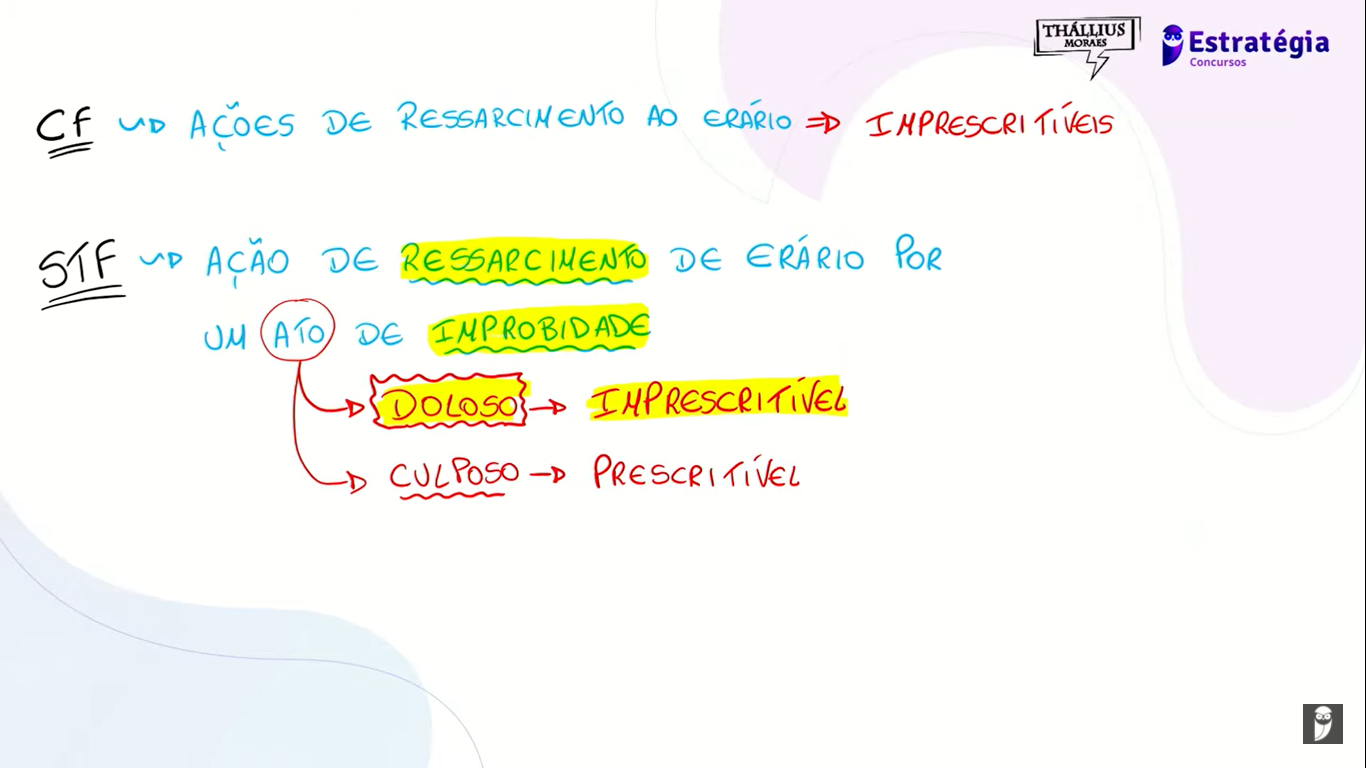 THÁLLIUS
MORAES
Estratégia
Concursos
CF ⇝ AÇÕES DE RESSARCIMENTO AO ERÁRIO ⇒ IMPRESCRITÍVEIS
STF ⇝ AÇÃO DE RESSARCIMENTO DE ERÁRIO POR
UM ATO DE IMPROBIDADE
→ DOLOSO → IMPRESCRITÍVEL
→ CULPOSO → PRESCRITÍVEL